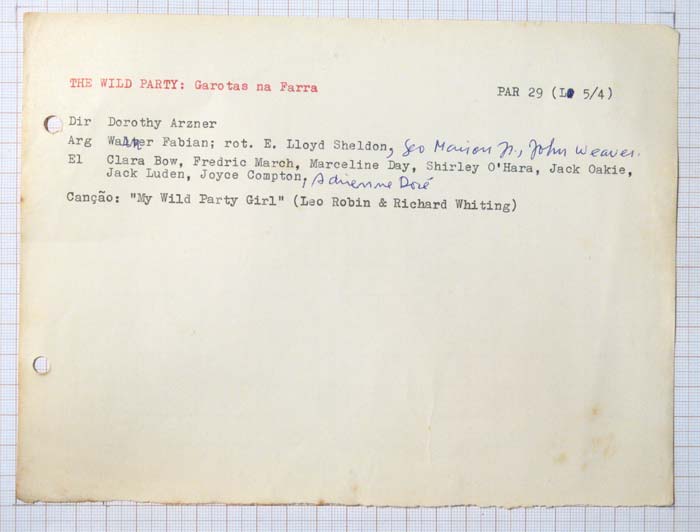 THE WILD PARTY: Garotas na Farra PAR 29 (L 5/4)
Dir Dorothy Arzner
Arg Warner Fabian; rot. E. Lloyd Sheldon, Geo Marion Jr., John Weaver.
El Clara Bow, Fredric March, Marceline Day, Shirley O'Hara, Jack Oakie,
Jack Luden, Joyce Compton, Adrienne Doré
Canção: "My Wild Party Girl" (Leo Robin & Richard Whiting)